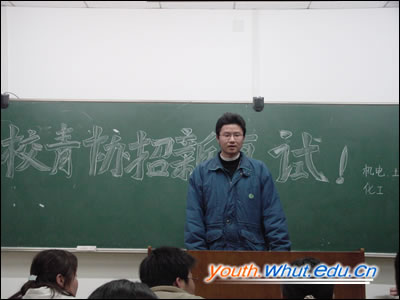 校青协招新面试！
机电 上
化工
Youth.Whut.edu.cn